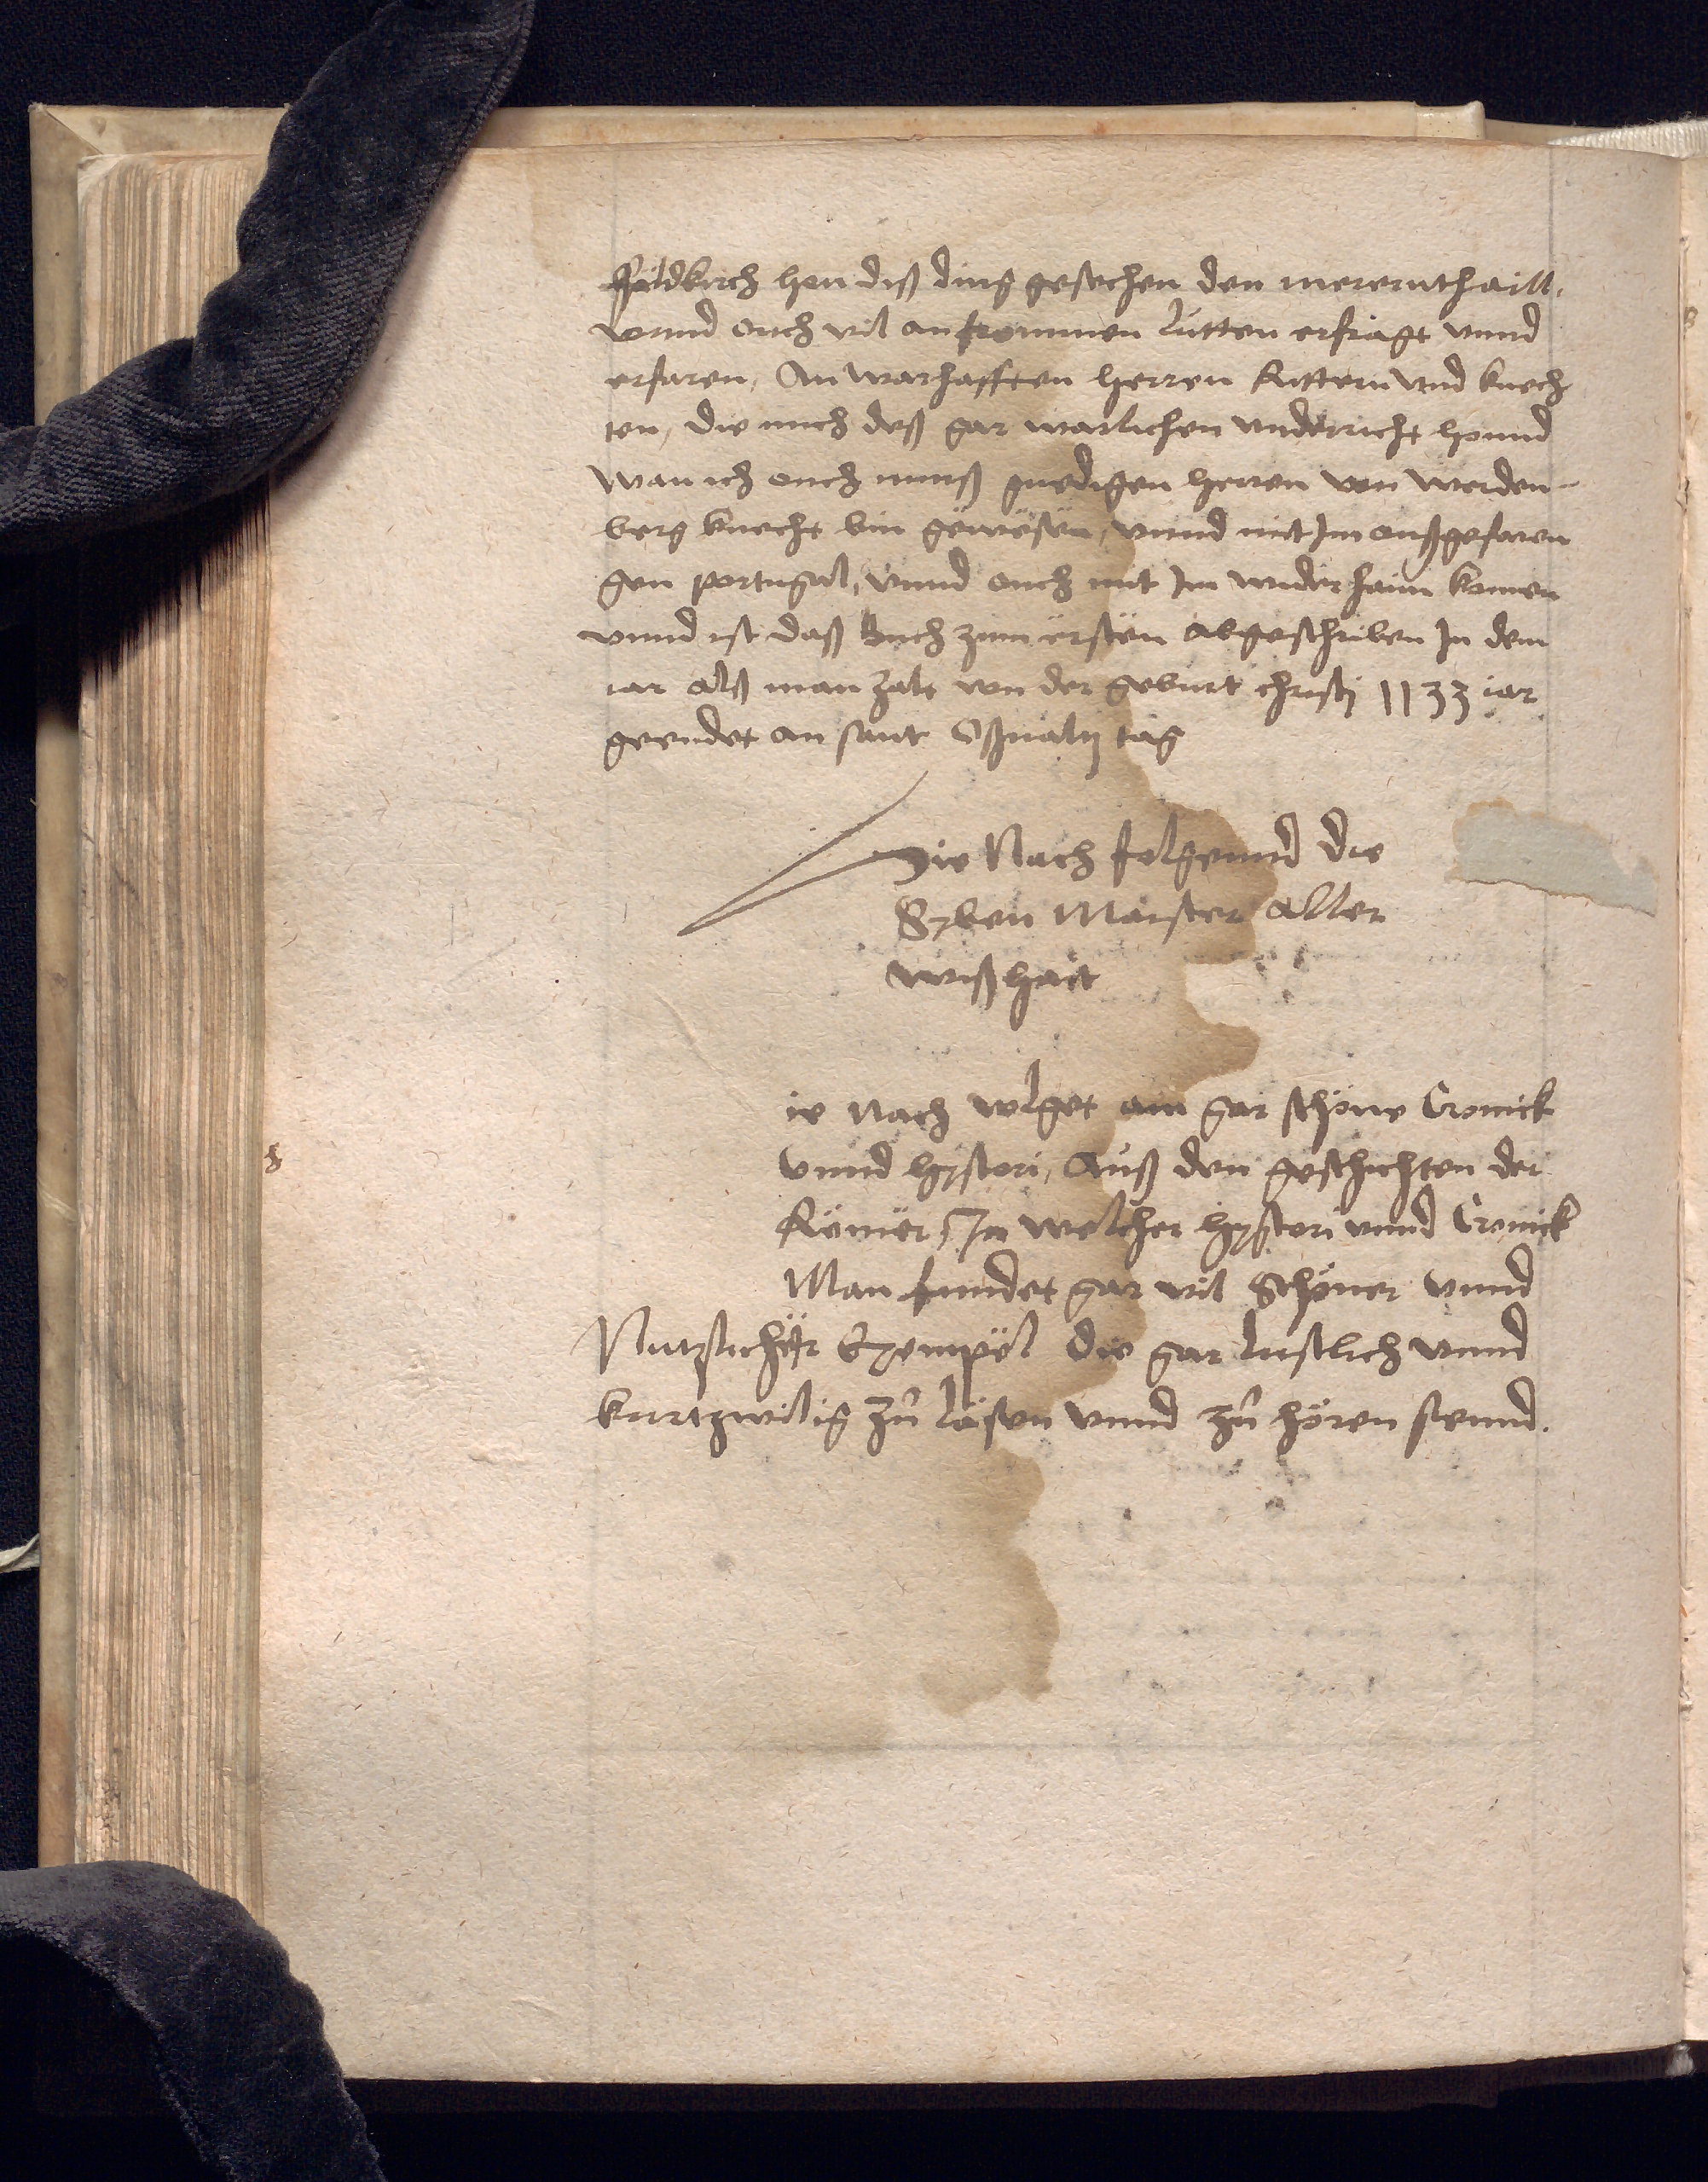 Fäldkirch hon diß ding gesechen den merernthaill,
vnnd ouch vil an frommen lütten erfragt vnnd
erfaren, An warhafften herren Rittern vnd knech
ten, die mich deß gar warlichen vnderricht honnd
wan ich ouch minß gnedigen herren von werden-
berg knecht bin gewësen, vnnd mit Im oußgefaren
gen portugal, vnnd ouch mit Im widerhaim komen
vnnd ist daß buch zum ersten abgeschriben In dem
iar alß man zalt von der geburt christj 1133 iar
geendet an sant Oßwaltz tag
Hie Nach folgennd die
Syben Maister aller
wißhait
ie nach volget ain gar schöne Cronick
vnnd hystori, Auß den geschichten der
Römer, In welcher hystori vnnd Cronick
Man findet gar vil Schöner vnnd
Nutzlicher Exempel die gar lustlich vnnd
kurtzwilig zů läsen vnnd zů hören sennd.